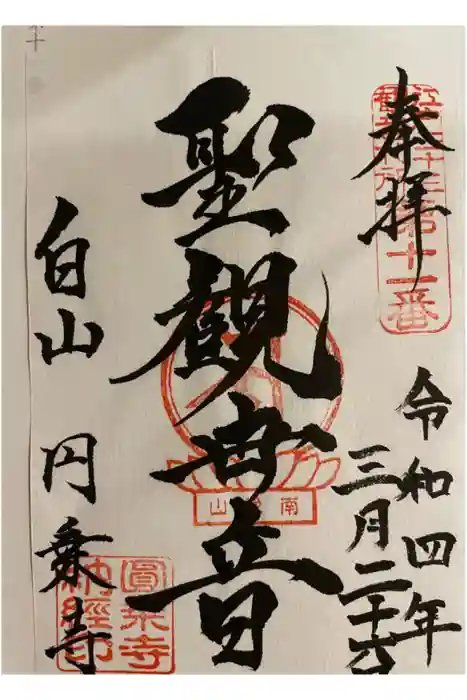 奉拝
第十一番
令和四年
三月二十六
聖観世音
白山 円乗寺
圓乗寺
納経印